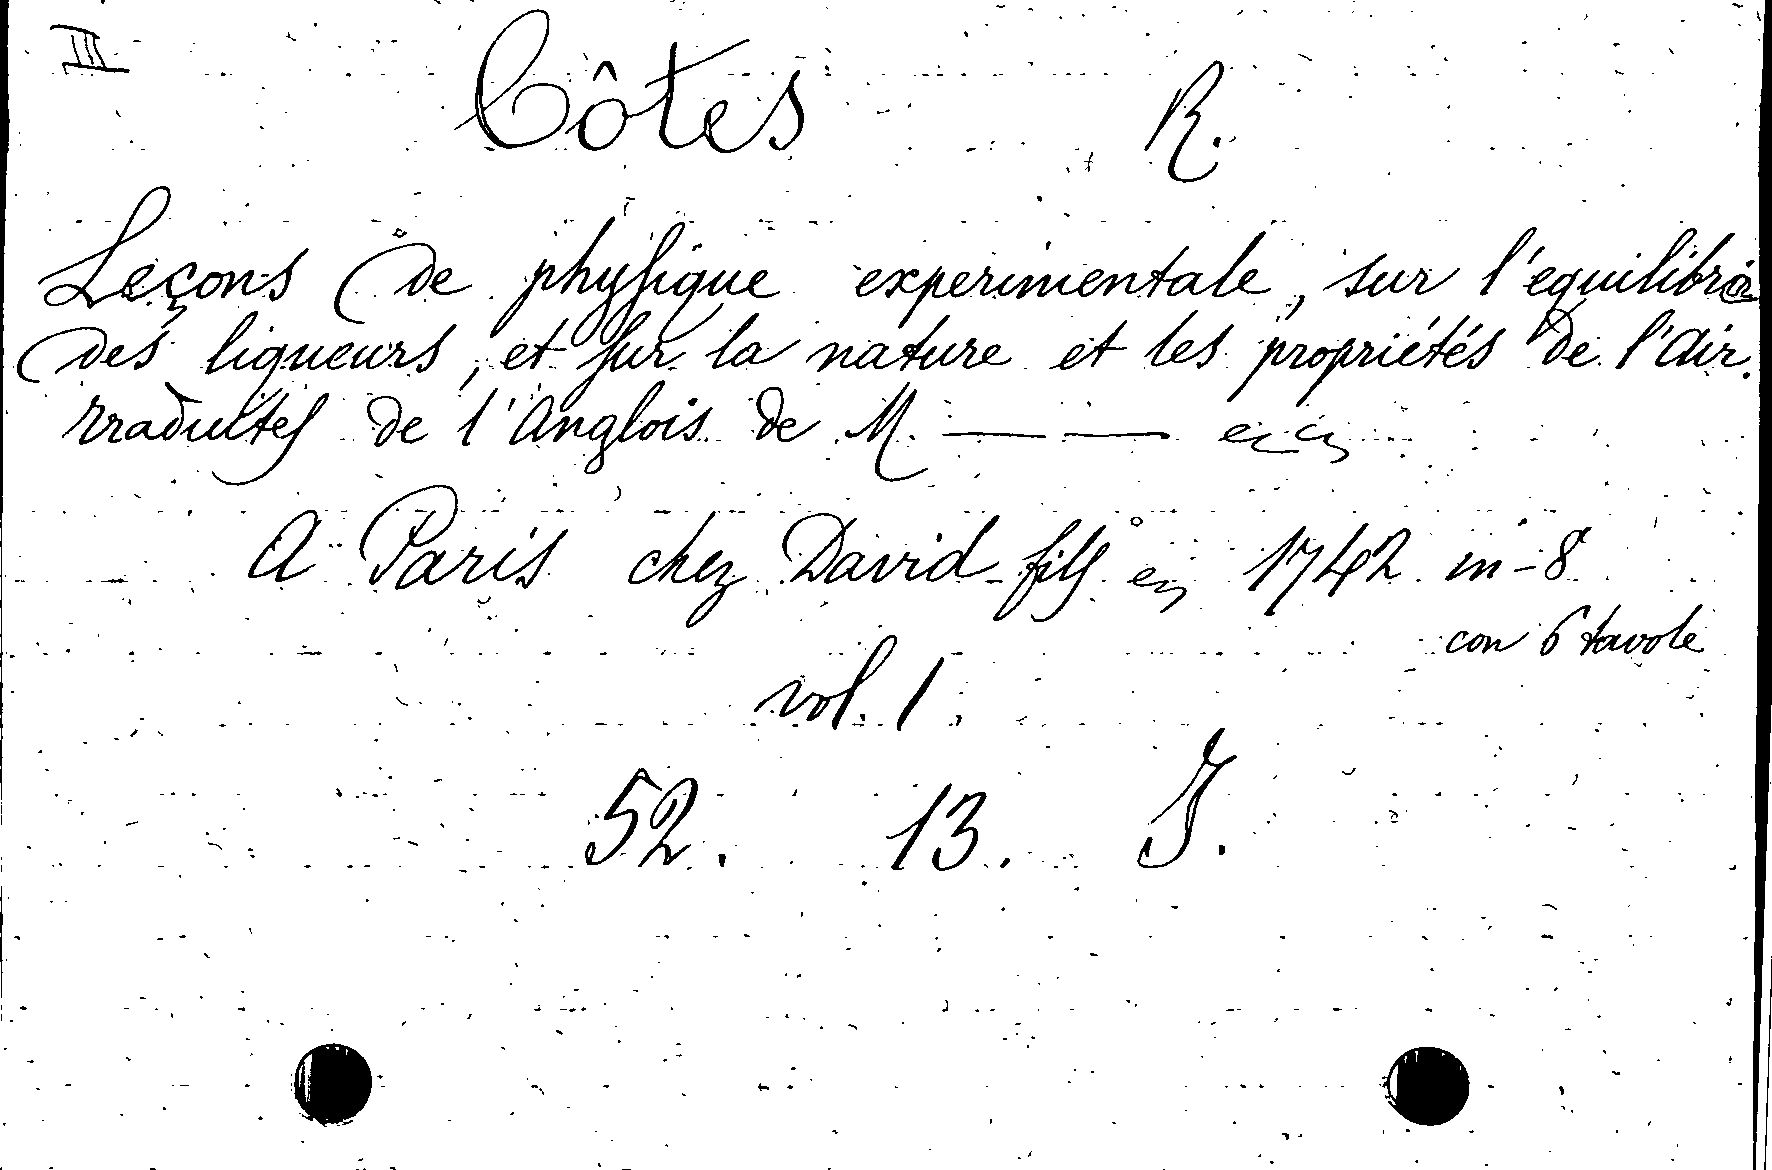 III
Côtes R.
Leçons de physique experimentale, sur l'equilibre
des liqueurs, et sur la nature et les propriétés de l'air.
Traduites de l'Anglois de M. — —
A Paris chez David fils 1742 in-8°
con 6 tavole
vol. 1.
52. 13. I.